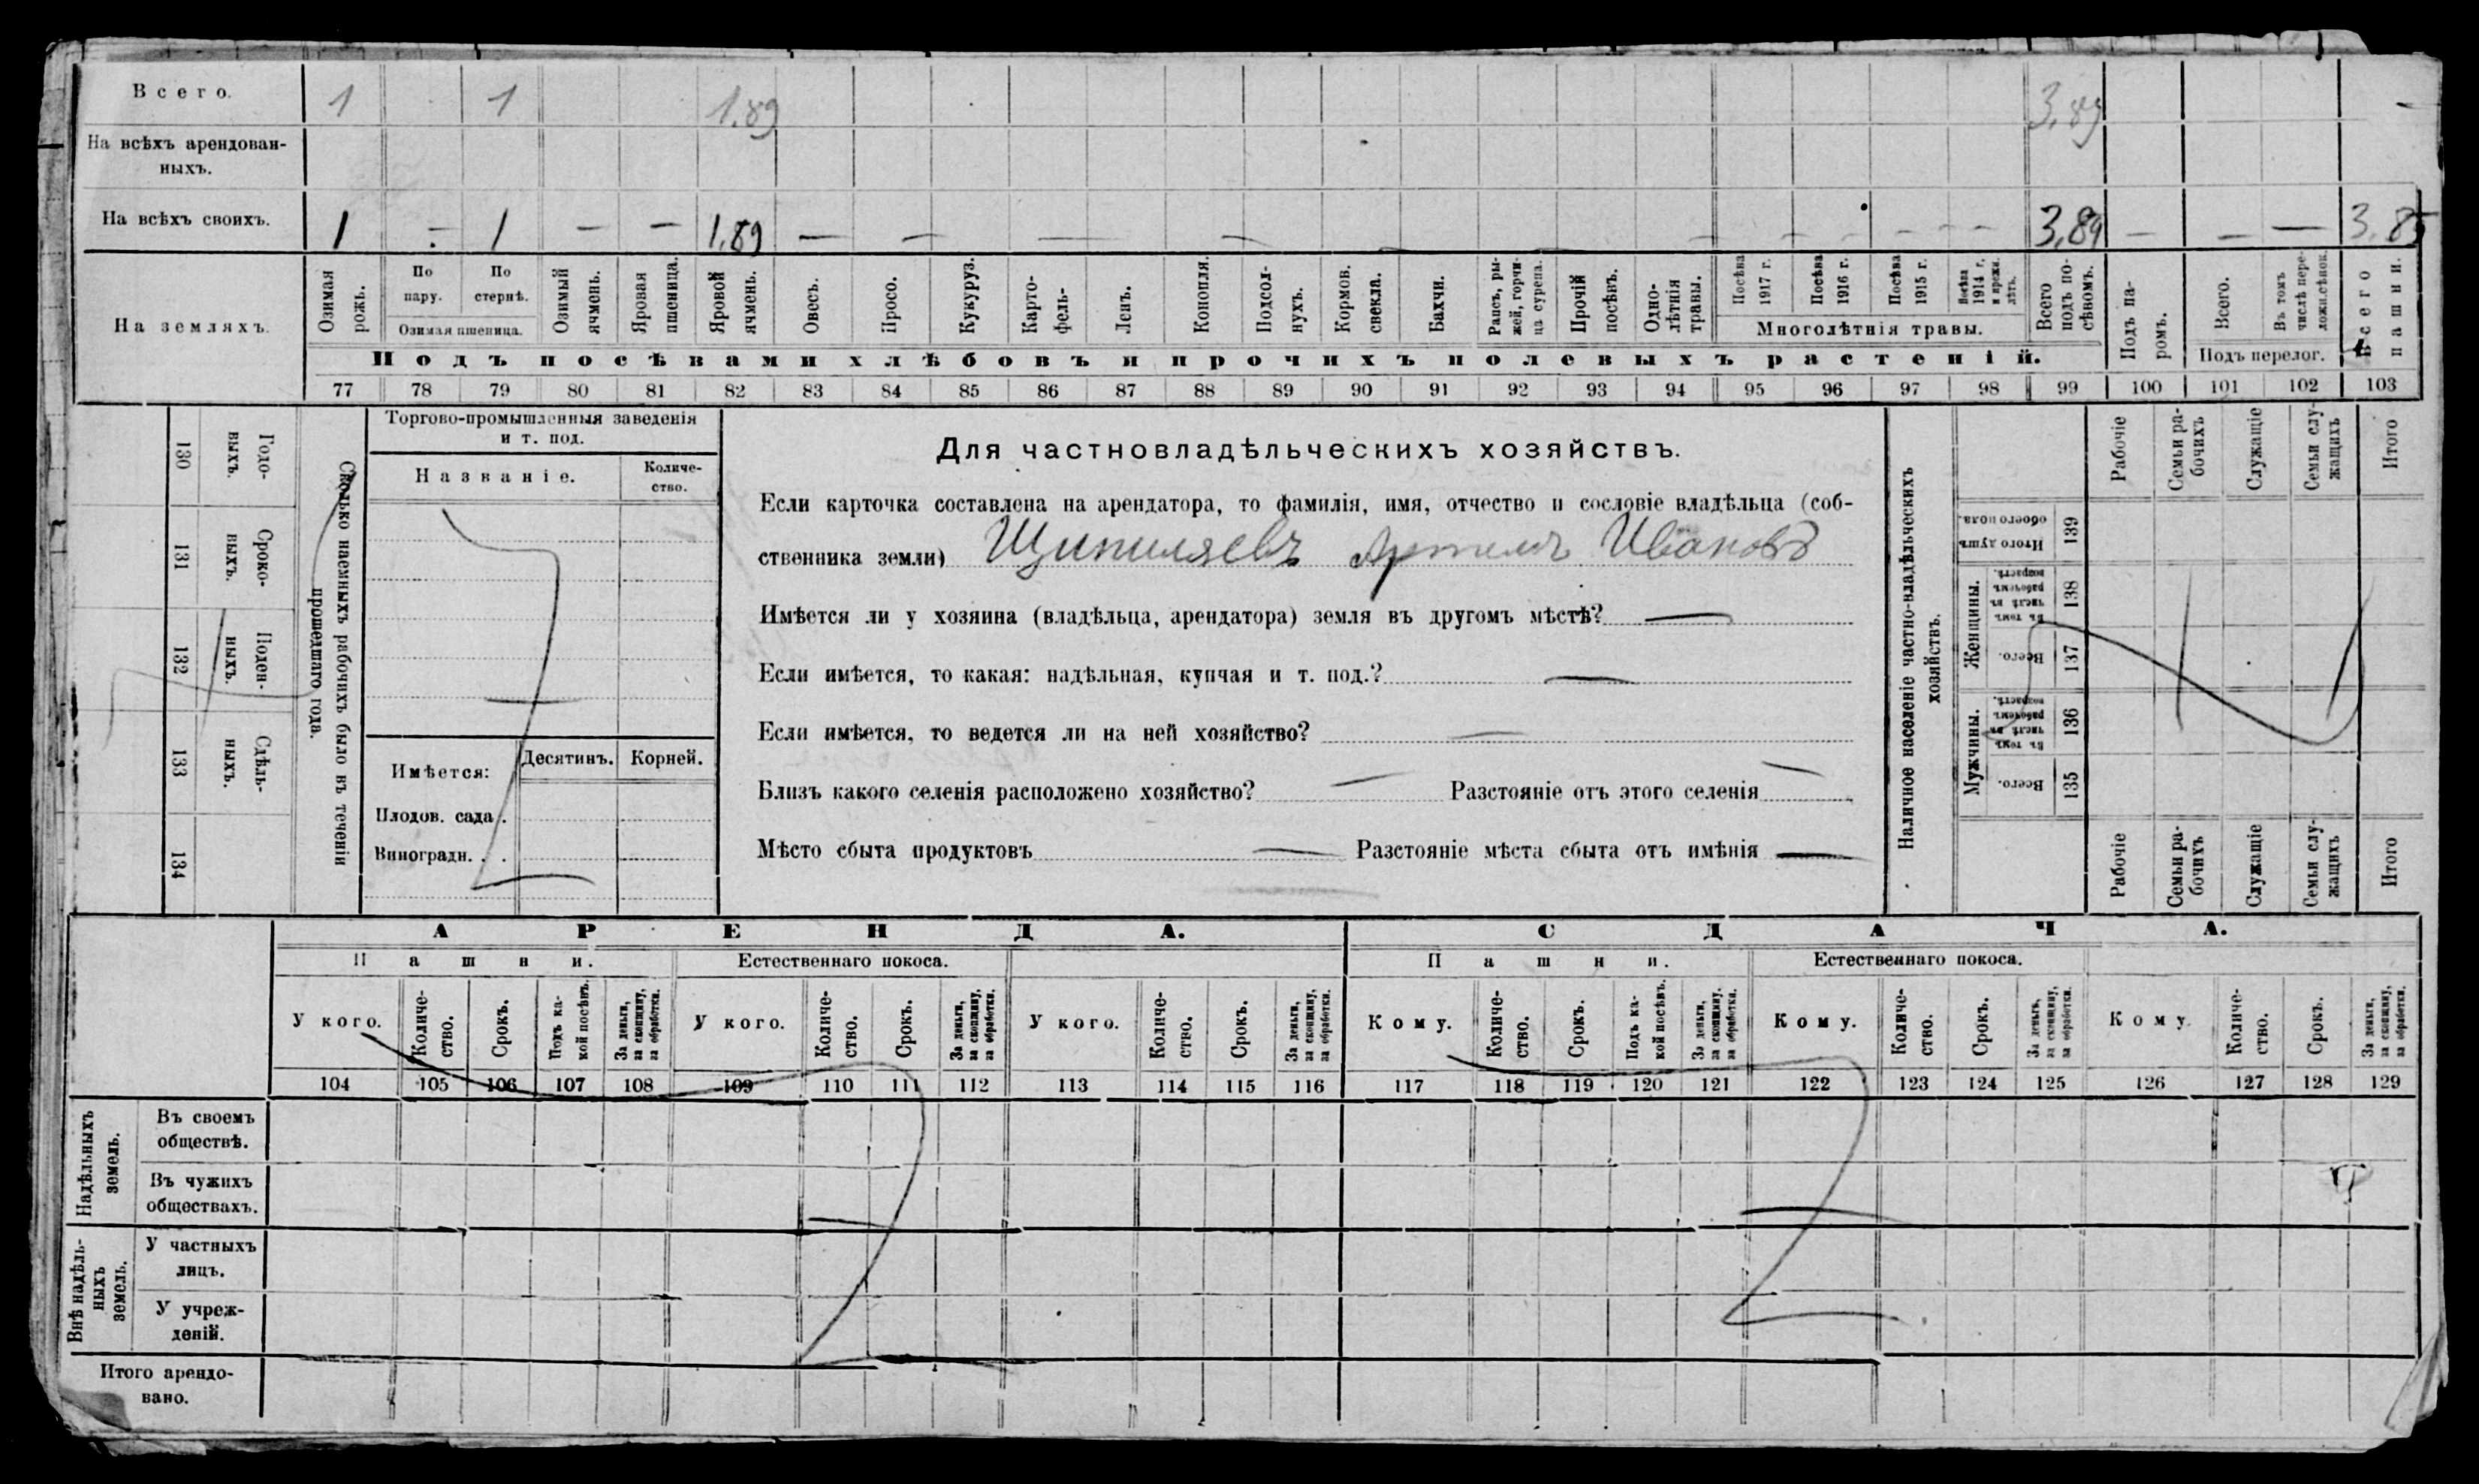 Всего. 1 1 1.89 3,89
На всѣхъ арендован-
ныхъ.
На всѣхъ своихъ. 1 — 1 — — 1,89 — — — — — — — — — — — — 3,89 — — — 3.85
На земляхъ.
Озимая рожь.
По пару.
По стернѣ.
Озимая пшеница.
Озимый ячмень.
Яровая пшеница.
Яровой ячмень.
Овесъ.
Просо.
Кукуруз.
Карто-
фель-
Ленъ.
Конопля.
Подсол-
нухъ.
Кормов.
свекла.
Бахчи.
Рапсъ, ры-
жей, горчи-
ца сурепа.
Прочій
посѣвъ.
Одно-
лѣтнія
травы.
Посѣва
1917 г.
Посѣва
1916 г.
Посѣва
1915 г.
Посѣва
1914 г.
и прежн.
лѣтъ.
Многолѣтнія травы.
Всего
подъ по-
сѣвомъ.
Подъ па-
ромъ.
Всего.
Въ томъ
числѣ пере-
ложн.сѣнок.
Подъ перелог.
Всего
пашни.
Подъ посѣвами хлѣбовъ и прочихъ полевыхъ растеній.
77 78 79 80 81 82 83 84 85 86 87 88 89 90 91 92 93 94 95 96 97 98 99 100 101 102 103
130 Годо-
выхъ.
131 Сроко-
ныхъ.
132 Поден-
ныхъ.
133 Сдѣль-
ныхъ.
134
Сколько наемныхъ рабочихъ было въ теченіи
прошедшаго года.
Торгово-промышленныя заведенія
и т. под.
Названіе.
Количе-
ство.
Имѣется: Десятинъ. Корней.
Плодов. сада .
Виноградн. . .
Для частновладѣльческихъ хозяйствъ.
Если карточка составлена на арендатора, то фамилія, имя, отчество и сословіе владѣльца (соб-
ственника земли) Щипиляевъ Артемъ Ивановъ
Имѣется ли у хозяина (владѣльца, арендатора) земля въ другомъ мѣстѣ? —
Если имѣется, то какая: надѣльная, купчая и т. под.? —
Если имѣется, то ведется ли на ней хозяйство? —
Близъ какого селенія расположено хозяйство? — Разстояніе отъ этого селенія —
Мѣсто сбыта продуктовъ — Разстояніе мѣста сбыта отъ имѣнія —
Наличное населеніе частно-владѣльческихъ
хозяйствъ.
Рабочіе
Семьи ра-
бочихъ
Служащіе
Семьи слу-
жащихъ
Итого
Итого душъ
обоего пола.
139
Женщины.
Въ томъ
числѣ въ
рабочемъ
возрастѣ.
138
Всего.
137
Мужчины.
Въ томъ
числѣ въ
рабочемъ
возрастѣ.
136
Всего.
135
Рабочіе
Семьи ра-
бочихъ
Служащіе
Семьи слу-
жащихъ
Итого
АРЕНДА. СДАЧА.
Пашни. Естественнаго покоса. Пашни. Естественнаго покоса.
У кого.
Количе-
ство.
Срокъ.
Подъ ка-
кой посѣвъ.
За деньги,
за скопщину,
за обработки.
У кого.
Количе-
ство.
Срокъ.
За деньги,
за скопщину,
за обработки.
У кого.
Количе-
ство.
Срокъ.
За деньги,
за скопщину,
за обработки.
Кому.
Количе-
ство.
Срокъ.
Подъ ка-
кой посѣвъ.
За деньги,
за скопщину,
за обработки.
Кому.
Количе-
ство.
Срокъ.
За деньги,
за скопщину,
за обработки.
Кому.
Количе-
ство.
Срокъ.
За деньги,
за скопщину,
за обработки.
104 105 106 107 108 109 110 111 112 113 114 115 116 117 118 119 120 121 122 123 124 125 126 127 128 129
Надѣльныхъ
земель.
Въ своемъ
обществѣ.
Въ чужихъ
обществахъ.
Внѣ надѣль-
ныхъ
земель.
У частныхъ
лицъ.
У учреж-
деній.
Итого арендо-
вано.